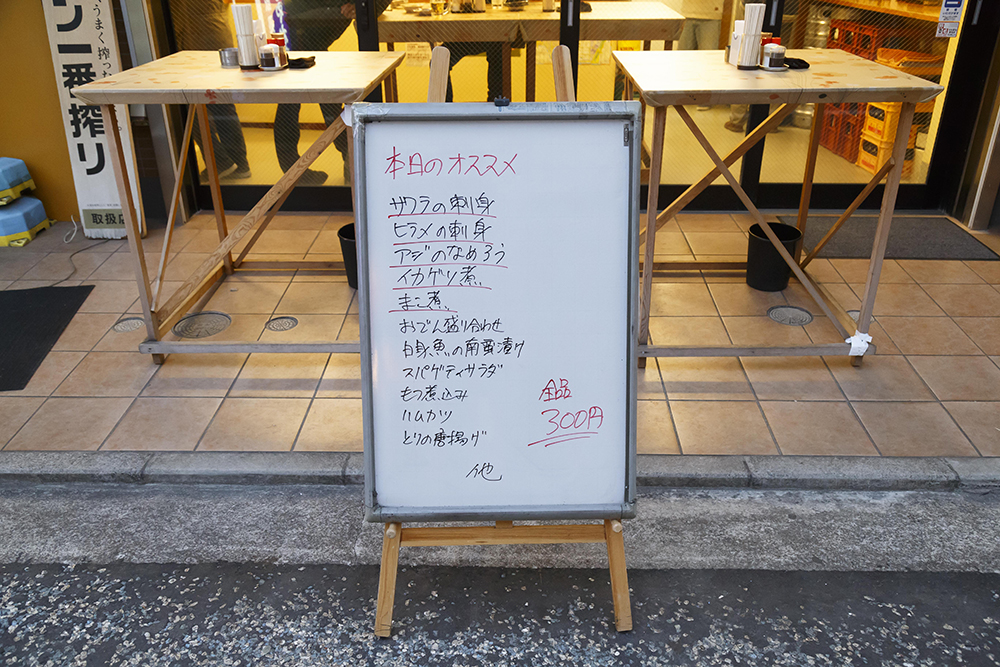 うまく搾った
ン一番搾り
取扱店
本日のオススメ
サワラの刺身
ヒラメの刺身
アジのなめろう
イカゲソ煮
まこ煮
おでん盛り合わせ
白身魚の南蛮漬け
スパゲティサラダ
もつ煮込み
ハムカツ
とりの唐揚げ
他
全品
300円